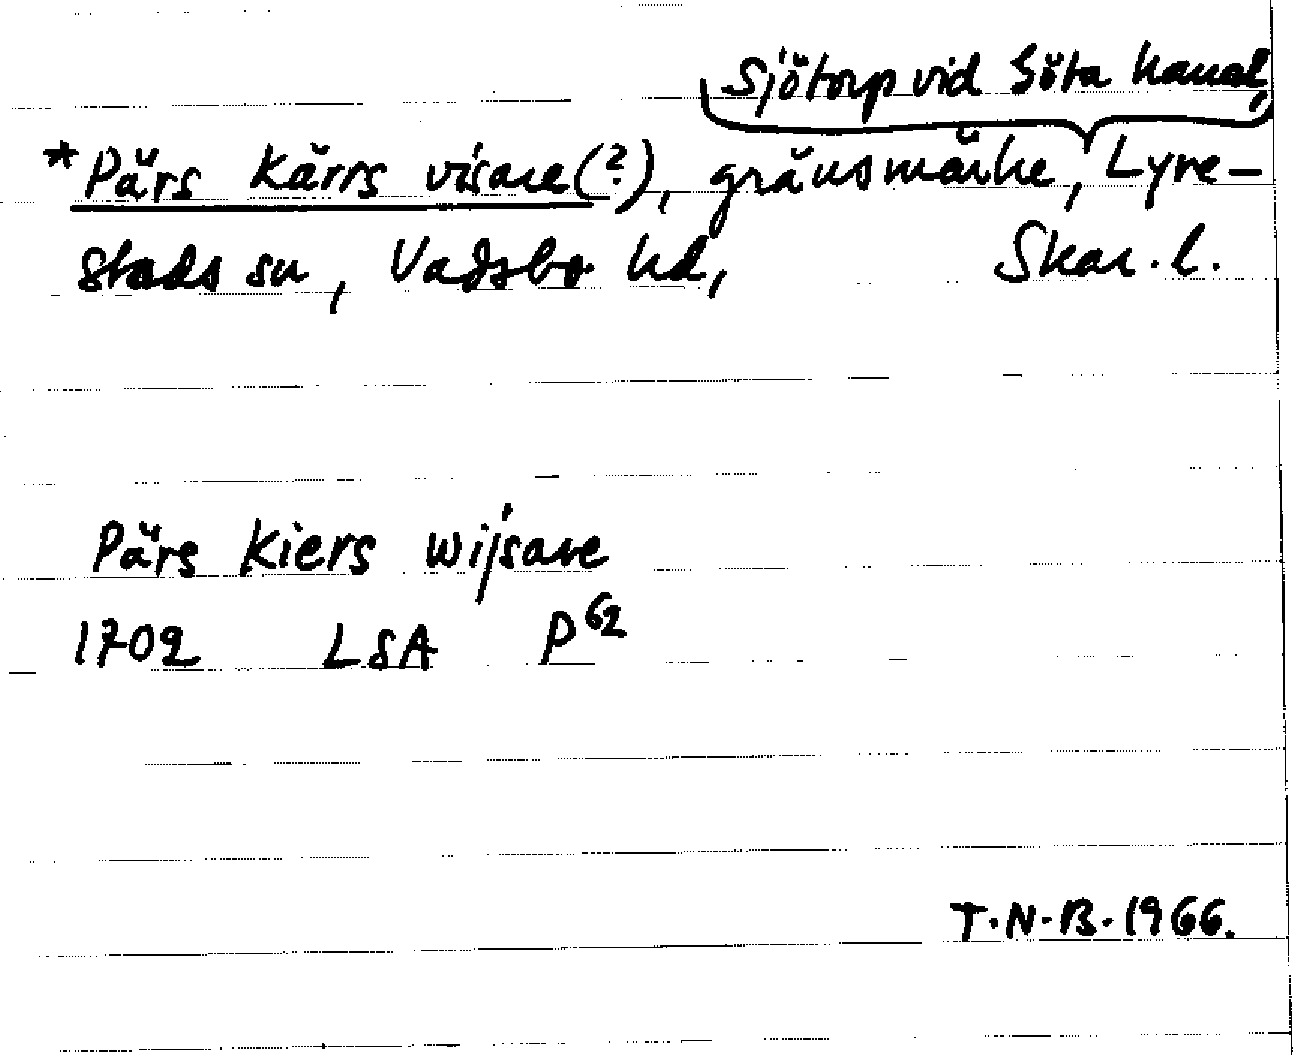 Sjötorp vid Göta kanal,
*Pärs Kärrs visare(?), gränsmärke, Lyre-
stads sn, Vadsbo hd, Skar. l.
Pärs Kiers wijsare
1702 LSA P62
T.N.B. 1966.